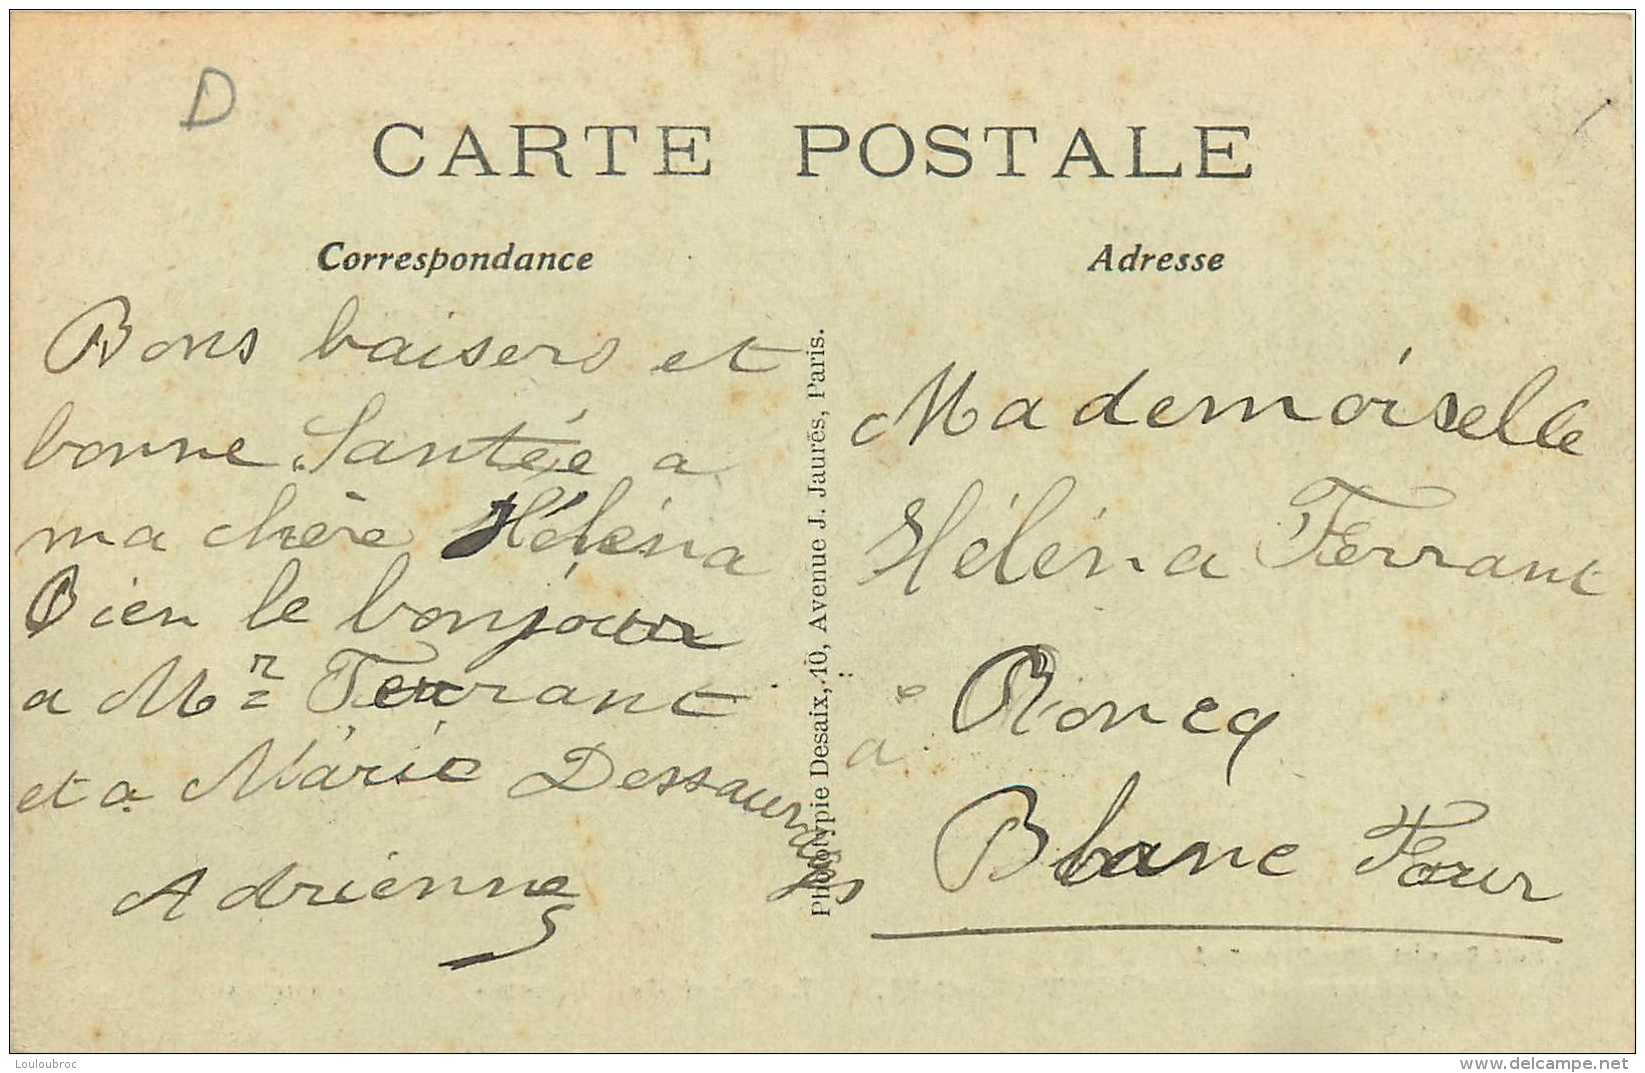 D
CARTE POSTALE
Correspondance
Bons baisers et
bonne Santée a
ma chère Héléna
Bien le bonjour
a Mr Ferrant
et a Marie Dessaur
Adrienne
Phototypie Desaix, 10, Avenue J. Jaurès, Paris.
Adresse
Mademoiselle
Héléna Ferrant
a Roncq
Blanc Four
Louloubroc
www.delcampe.net